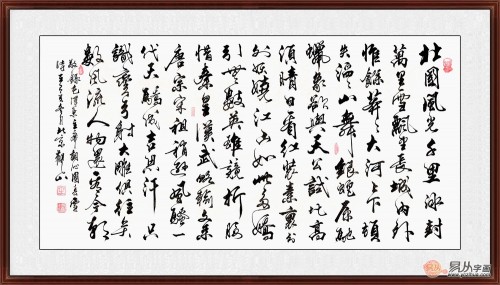 北國風光千里冰封
萬里雪飄望長城內外
惟餘莽莽大河上下頓
失滔滔山舞銀蛇原馳
蠟象欲與天公試比高
須晴日看紅裝素裹分
外妖嬈江山如此多嬌
引無數英雄競折腰
惜秦皇漢武略輸文采
唐宗宋祖稍遜風騷一
代天驕成吉思汗只
識彎弓射大雕俱往矣
數風流人物還看今朝
敬錄毛澤東主席詞沁園春雪
時北京觀山
易从字画